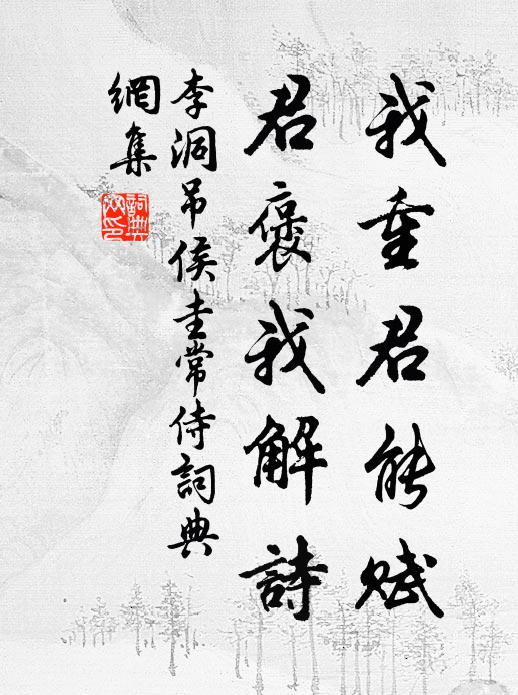 我重君能赋
君褒我解詩
李洞吊侯圭常侍詞典
網集
詞典
网印